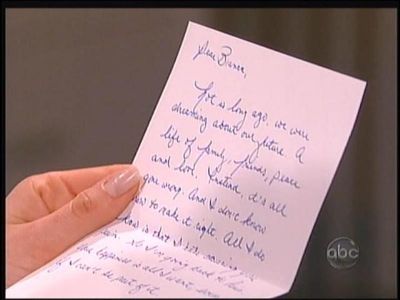 Dear Bianca,
Not so long ago, we were
dreaming about our future. A
life of family, friends, peace
and love. Instead, it's all
gone wrong. And I don't know
how to make it right. All I do
know is that I
So I'm going
happiness is all I want, even
if I can't be part of it.
abc